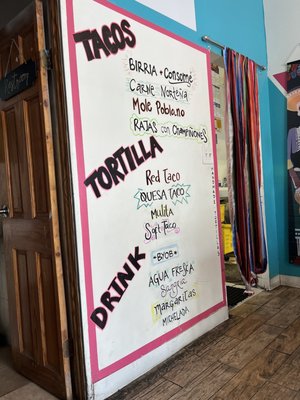 TACOS
BIRRIA + Consome
Carne Norteña
Mole Poblano
RAJAS con CHAMPIÑONES
TORTILLA
Red Taco
QUESA TACO
Mulita
Soft Taco
DRINK
BYOB
AGUA FRESCA
Sangria
MARGARITAS
MICHELADA